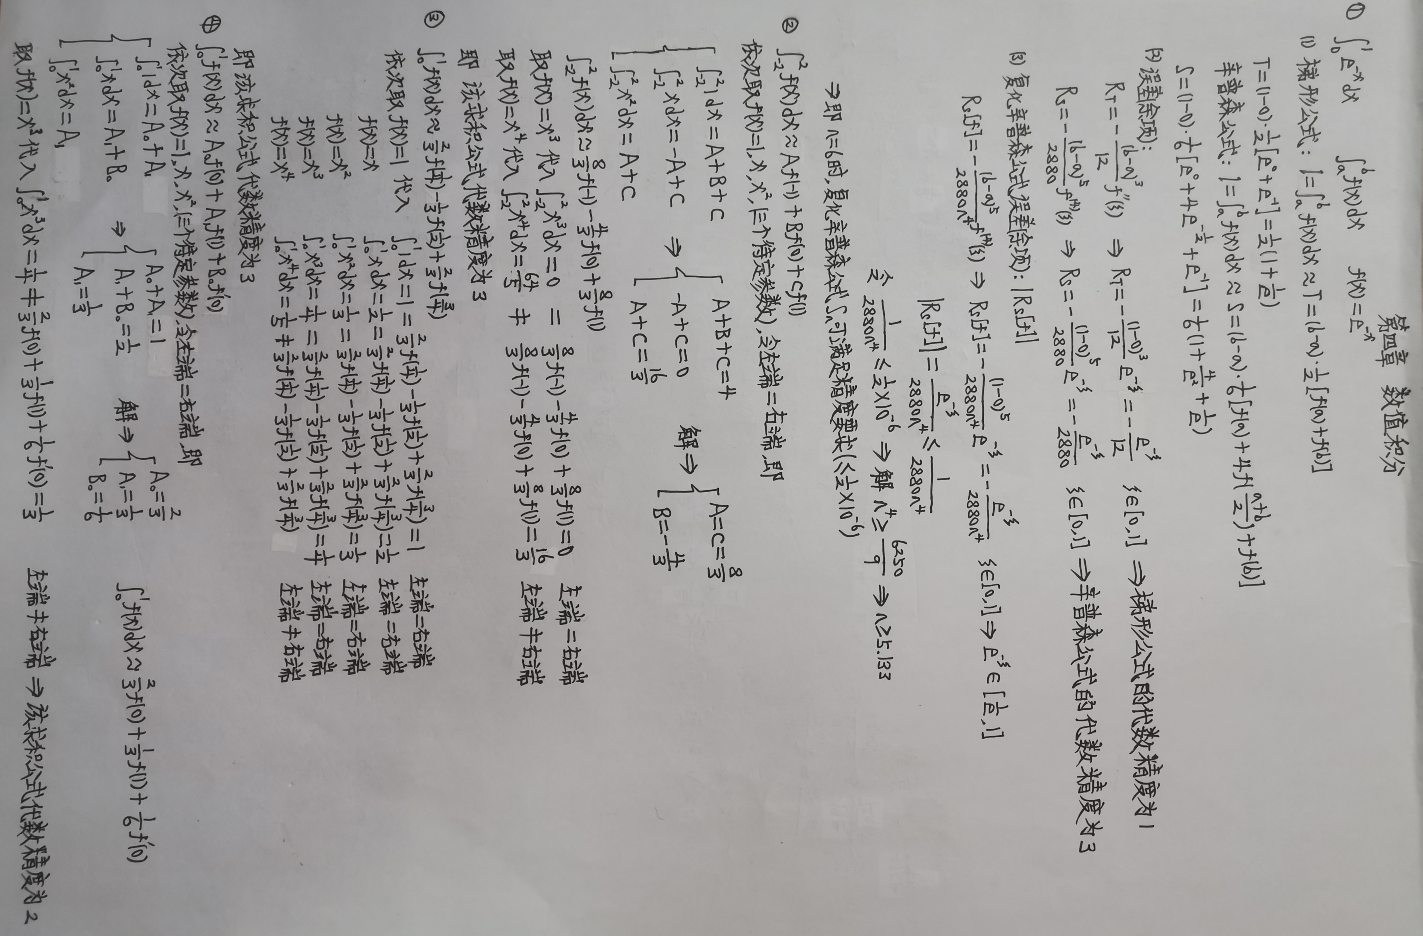 第四章 数值积分
① ∫₀¹e⁻ˣdx ∫ₐᵇf(x)dx f(x)=e⁻ˣ
(1) 梯形公式: I=∫ₐᵇf(x)dx≈T=(b-a)·1/2[f(a)+f(b)]
T=(1-0)·1/2[e⁰+e⁻¹]=1/2(1+1/e)
辛普森公式: I=∫ₐᵇf(x)dx≈S=(b-a)·1/6[f(a)+4f((a+b)/2)+f(b)]
S=(1-0)·1/6[e⁰+4e^(-1/2)+e⁻¹]=1/6(1+4/e^(1/2)+1/e)
(2) 误差余项:
R_T=-(b-a)³/12 f''(ξ) ⇒ R_T=-(1-0)³/12 e^(-ξ)=-e^(-ξ)/12 ξ∈[0,1] ⇒梯形公式的代数精度为1
R_S=-(b-a)⁵/2880 f⁽⁴⁾(ξ) ⇒ R_S=-(1-0)⁵/2880 e^(-ξ)=-e^(-ξ)/2880 ξ∈[0,1] ⇒辛普森公式的代数精度为3
(3) 复化辛普森公式误差余项: |Rₛ[f]|
Rₛ[f]=-(b-a)⁵/2880n⁴ f⁽⁴⁾(ξ) ⇒ Rₛ[f]=-(1-0)⁵/2880n⁴ e^(-ξ)=-e^(-ξ)/2880n⁴ ξ∈[0,1] ⇒ e^(-ξ)∈[1/e,1]
|Rₛ[f]|=e^(-ξ)/2880n⁴≤1/2880n⁴
令 1/2880n⁴≤1/2×10⁻⁶ ⇒ 解 n⁴≥6250/9 ⇒ n≥5.133
⇒即 n=6时,复化辛普森公式Sₙ可满足精度要求(≤1/2×10⁻⁶)
② ∫₋₂²f(x)dx≈Af(-1)+Bf(0)+Cf(1)
依次取f(x)=1,x,x²,(三个待定参数),令左端=右端,即
∫₋₂²1dx=A+B+C A+B+C=4
∫₋₂²xdx=-A+C ⇒ -A+C=0 解⇒ A=C=8/3
∫₋₂²x²dx=A+C A+C=16/3 B=-4/3
∫₋₂²f(x)dx≈8/3f(-1)-4/3f(0)+8/3f(1)
取f(x)=x³代入 ∫₋₂²x³dx=0 = 8/3f(-1)-4/3f(0)+8/3f(1)=0 左端=右端
取f(x)=x⁴代入 ∫₋₂²x⁴dx=64/5 ≠ 8/3f(-1)-4/3f(0)+8/3f(1)=16/3 左端≠右端
即 该求积公式代数精度为3
③ ∫₀¹f(x)dx≈2/3f(1/4)-1/3f(1/2)+2/3f(3/4)
依次取f(x)=1 代入 ∫₀¹1dx=1=2/3f(1/4)-1/3f(1/2)+2/3f(3/4)=1 左端=右端
f(x)=x ∫₀¹xdx=1/2=2/3f(1/4)-1/3f(1/2)+2/3f(3/4)=1/2 左端=右端
f(x)=x² ∫₀¹x²dx=1/3=2/3f(1/4)-1/3f(1/2)+2/3f(3/4)=1/3 左端=右端
f(x)=x³ ∫₀¹x³dx=1/4=2/3f(1/4)-1/3f(1/2)+2/3f(3/4)=1/4 左端=右端
f(x)=x⁴ ∫₀¹x⁴dx=1/5≠2/3f(1/4)-1/3f(1/2)+2/3f(3/4) 左端≠右端
即 该求积公式代数精度为3
④ ∫₀¹f(x)dx≈A₀f(0)+A₁f(1)+B₀f'(0)
依次取f(x)=1,x,x²,(三个待定参数),令左端=右端,即
∫₀¹1dx=A₀+A₁ A₀+A₁=1 A₀=2/3
∫₀¹xdx=A₁+B₀ ⇒ A₁+B₀=1/2 解⇒ A₁=1/3 ∫₀¹f(x)dx≈2/3f(0)+1/3f(1)+1/6f'(0)
∫₀¹x²dx=A₁ A₁=1/3 B₀=1/6
取f(x)=x³代入 ∫₀¹x³dx=1/4≠2/3f(0)+1/3f(1)+1/6f'(0)=1/3 左端≠右端 ⇒ 该求积公式代数精度为2